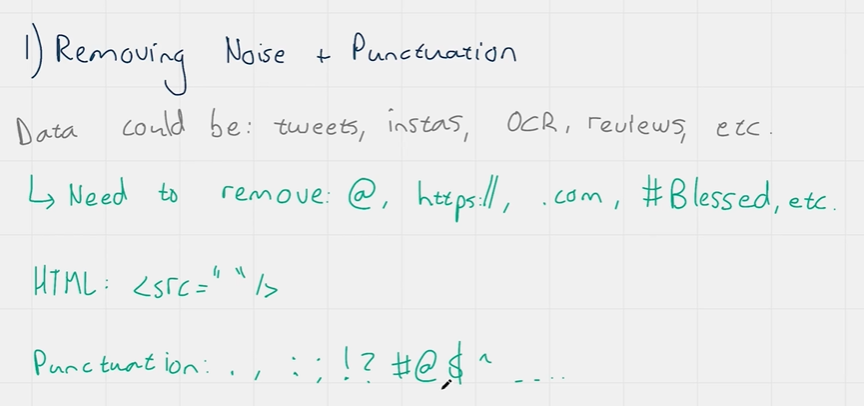 1) Removing Noise + Punctuation
Data could be: tweets, instas, OCR, reviews, etc.
↳ Need to remove: @, https://, .com, #Blessed, etc.
HTML: <src=" "/>
Punctuation: . , : ; ! ? # @ $ ^ _ ....